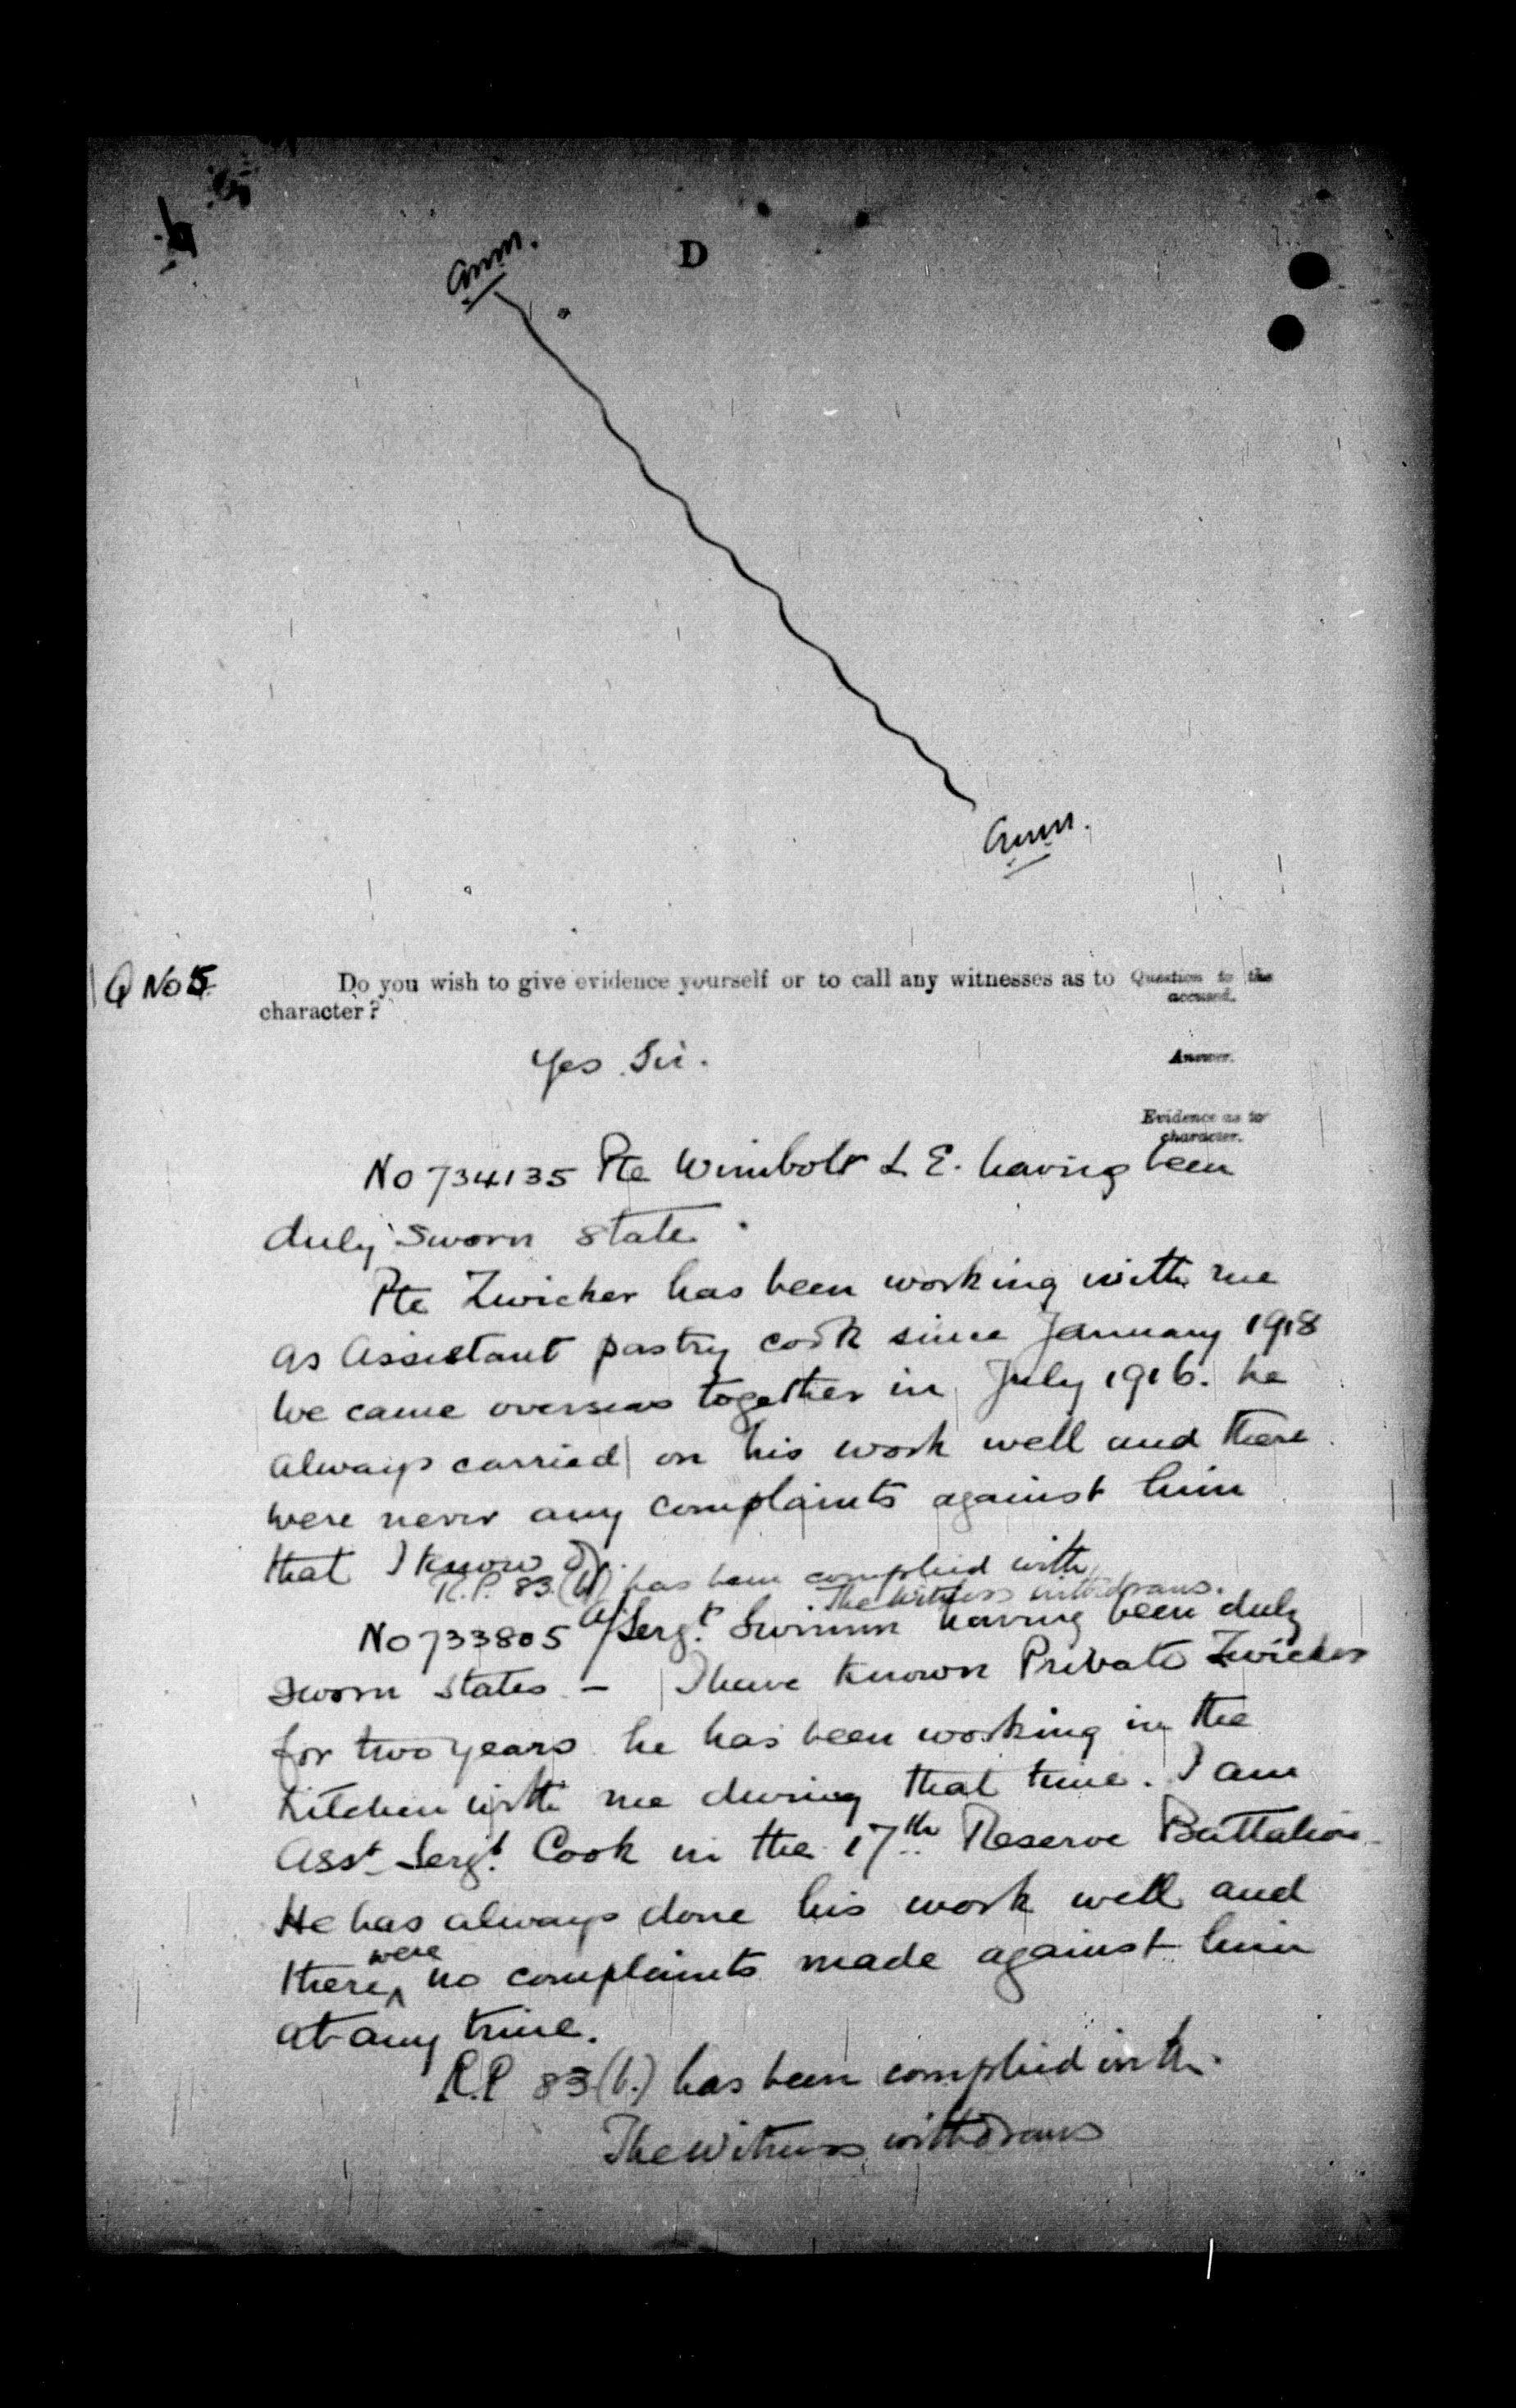 D
Q No 5.
Do you wish to give evidence yourself or to call any witnesses as to
character?
Question to the
accused.
Yes Sir.
Answer.
Evidence as to
character.
No 734135 Pte Wimbolt L E. having been
duly sworn state.
Pte Zwicker has been working with me
as assistant pastry cook since January 1918
We came overseas together in July 1916. he
always carried on his work well and there
were never any complaints against him
that I know of.
R.P. 83 (b) has been complied with
The witness withdraws.
No 733805 a/Sergt. having been duly
sworn states - I have known Private Zwicker
for two years he has been working in the
kitchen with me during that time. I am
Asst Sergt. Cook in the 17th Reserve Battalion
He has always done his work well and
there were no complaints made against him
at any time.
R.P 83 (b.) has been complied with.
The witness withdraws